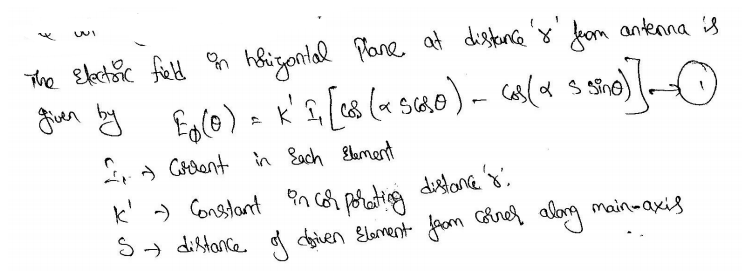 The Electric field in horizontal Plane at distance 'r' from antenna is
given by E_ϕ(θ) = K' I₁ [cos (α S cosθ) - cos (α S sinθ)] → ①
I₁ → Current in Each Element
K' → Constant incorporating distance 'r'.
S → distance of driven Element from corner along main-axis